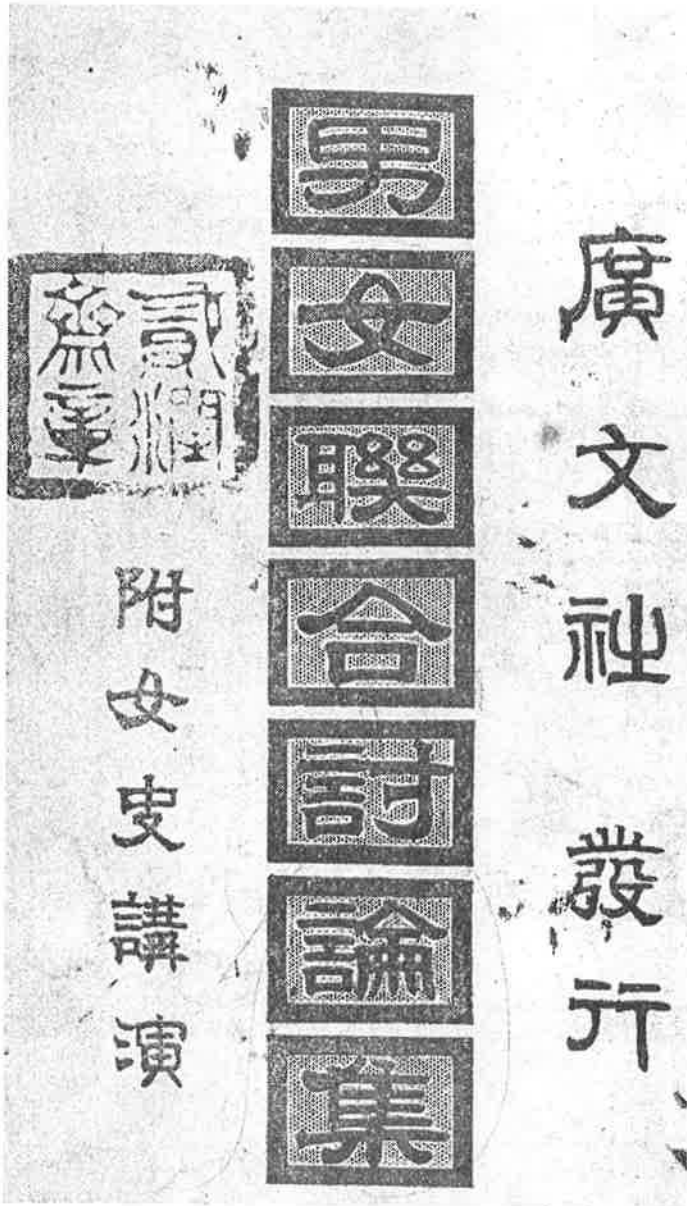 廣文社 發行
男女聯合討論集
附女史講演